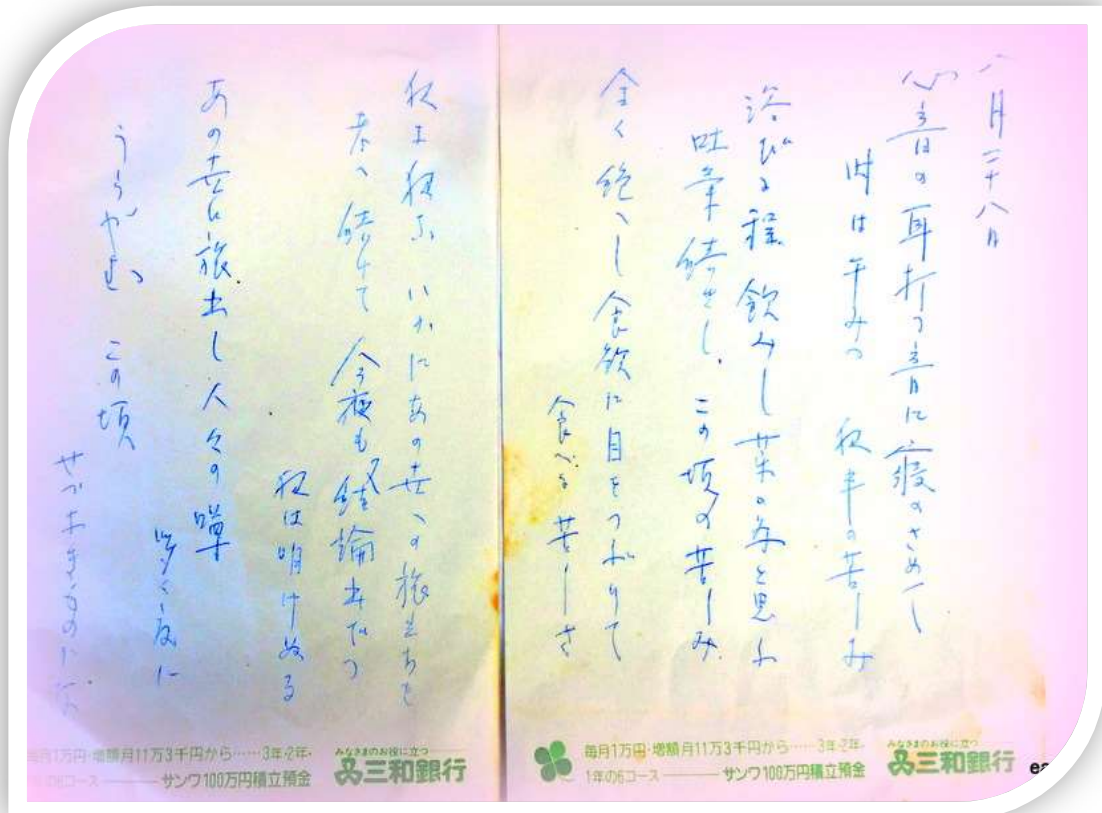 八月二十八日
心音の耳打つ音に寝のさめし
時は丑みつ 夜半の苦しみ
浴びる程飲みし薬の為と思ふ
吐気続きし、この頃の苦しみ
全く絶へし食欲に目をつぶりて
食べる苦しさ
いかにあの世への旅立ちを
考へ続けて 今夜も又結論出でづ
夜は明けぬる
あの世に旅出し人々の噂
度に
うらやむ この頃
毎月1万円·増額月11万3千円から……3年·2年·
1年の6コース———サンワ100万円積立預金
みなさまのお役に立つ
三和銀行
毎月1万円·増額月11万3千円から……3年·2年·
の6コース———サンワ100万円積立預金
みなさまのお役に立つ
三和銀行